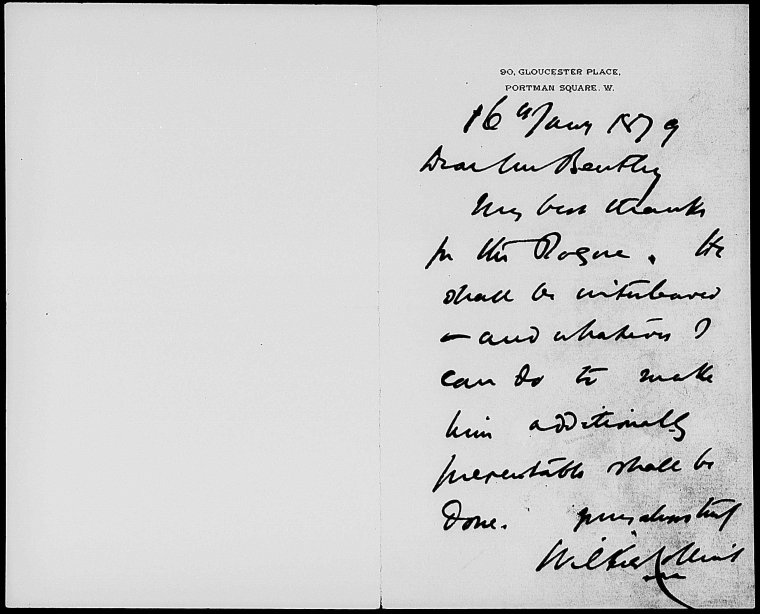 90, GLOUCESTER PLACE,
PORTMAN SQUARE. W.
16th Jany 1879
Dear Mr Bentley
My best thanks
for the Rogue. He
shall be interleaved
– and whatever I
can do to make
him additionally
presentable shall be
done. yours always truly
Wilkie Collins